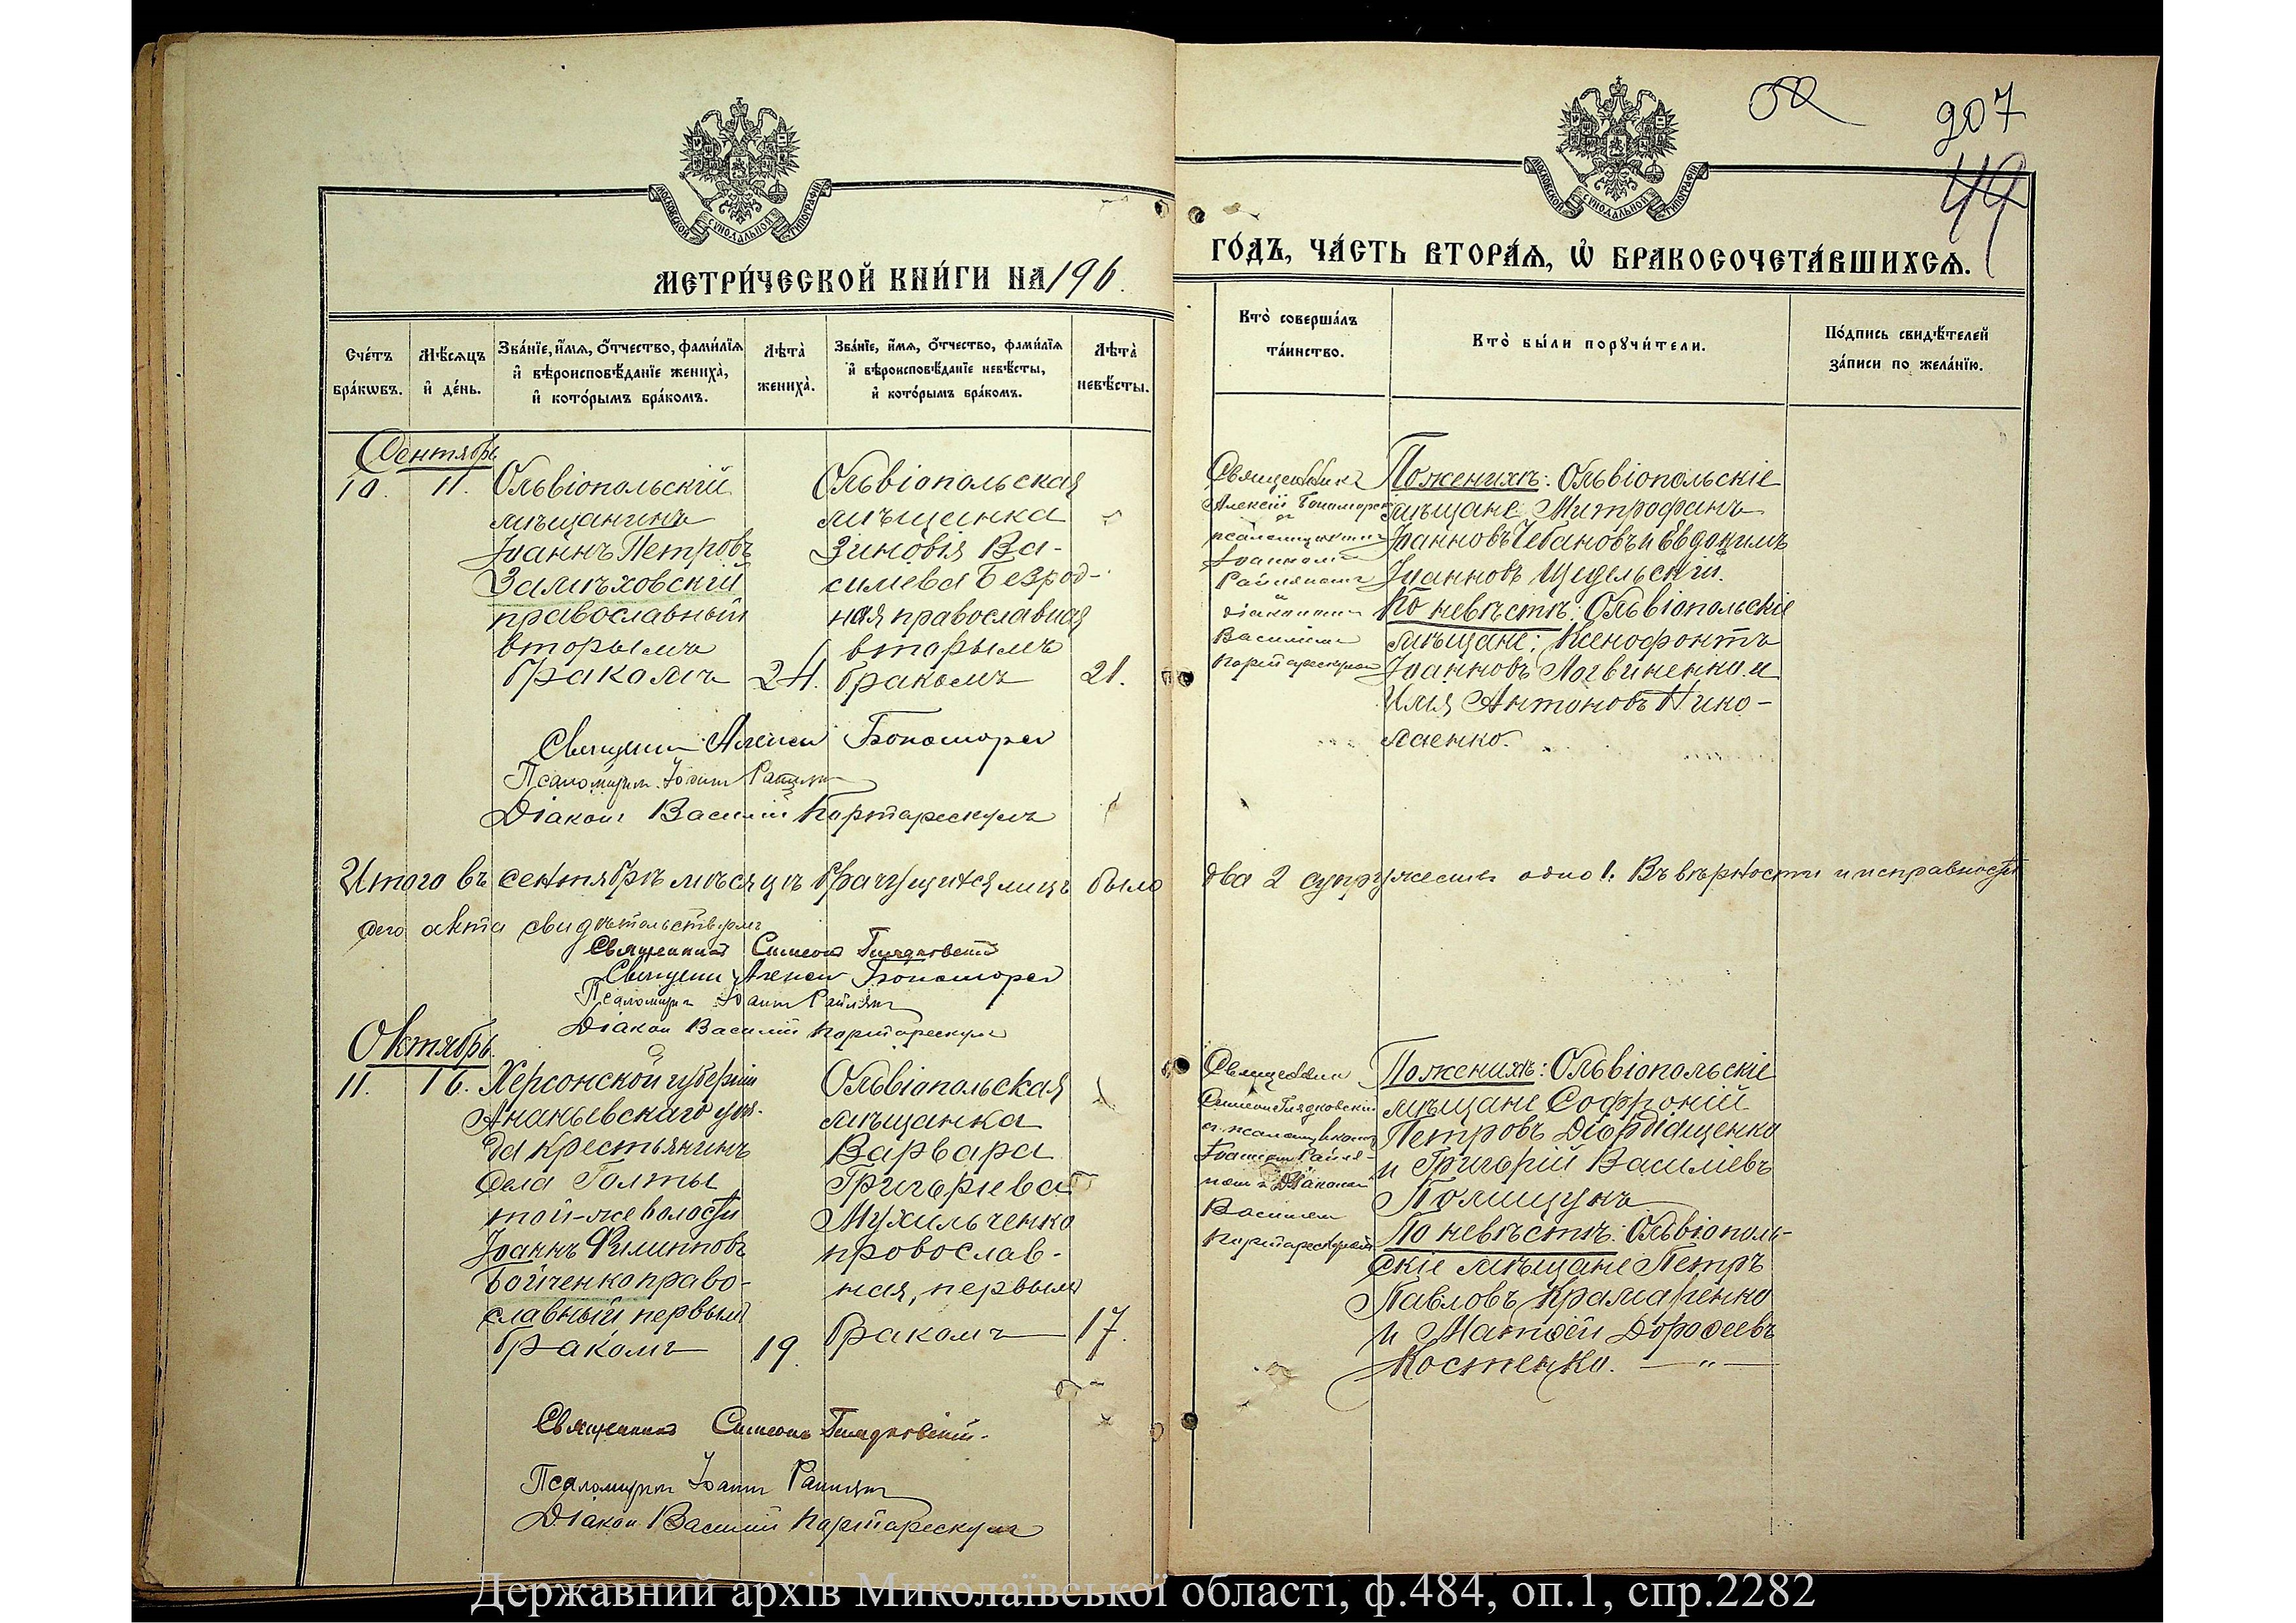 50
207
49
МОСКОВСКОЙ СѴНОДАЛЬНОЙ ТИПОГРАФІИ
МОСКОВСКОЙ СѴНОДАЛЬНОЙ ТИПОГРАФІИ
МЕТРИ́ЧЕСКОЙ КНИ́ГИ НА 196.
ГО́ДЪ, ЧА́СТЬ ВТОРА́Я, Ѡ҆ БРАКОСОЧЕТА́ВШИХСЯ.
Сче́тъ бра́кѡвъ.
Мѣ́сяцъ и҆ де́нь.
Зва́нїе, и҆́мя, ѻ҆́тчество, фами́лїя
и҆ вѣроисповѣ́данїе жениха̀,
и҆ кото́рымъ бра́комъ.
Лѣта̀ жениха̀.
Зва́нїе, и҆́мя, ѻ҆́тчество, фами́лїя
и҆ вѣроисповѣ́данїе невѣ́сты,
и҆ кото́рымъ бра́комъ.
Лѣта̀ невѣ́сты.
Кто̀ соверша́лъ
та́инство.
Кто̀ бы́ли порꙋчи́тели.
По́дпись свидѣ́телей
за́писи по жела́нїю.
Сентябрь
10. 11.
Ольвіопольскій
мѣщанинъ
Іоаннъ Петровъ
Замѣховскій
православный
вторымъ
бракомъ
24.
Ольвіопольская
мѣщанка
Зиновія Ва-
силиева Безрод-
ная православная
вторымъ
бракомъ
21.
Священникъ
Алексій Бономорск
псаломщикомъ
Іоанномъ
Райляномъ
и
діакономъ
Василіемъ
Портарескулом
По женихѣ: Ольвіопольскіе
мѣщане: Митрофанъ
Іоанновъ Чебановъ и Евдокимъ
Іоанновъ Щедельскій.
По невѣстѣ: Ольвіопольскіе
мѣщане: Ксенофонтъ
Іоанновъ Логвиненко и
Илія Антоновъ Нико-
лаенко.
Священ. Алексій
Псаломщикъ Іоаннъ Райлянъ
Діаконъ Василій Портарескулъ
Итого въ сентябрѣ мѣсяцѣ брачущихся лицъ было два 2 супружествъ одно 1. Въ вѣрности и исправности
сего акта свидѣтельствуемъ
Священникъ Симеонъ Гладковскій
Священ. Алексій
Псаломщикъ Іоаннъ Райлянъ
Діаконъ Василій Портарескулъ
Октябрь.
11. 16.
Херсонской губерніи
Ананьевскаго уѣз-
да крестьянинъ
села Голты
той-же волости
Іоаннъ Филипповъ
Бойченко право-
славный первымъ
бракомъ
19.
Ольвіопольская
мѣщанка
Варвара
Григориева
Мухильченко
провослав-
ная, первымъ
бракомъ
17.
Священник
Симеон Гладковскій
и псаломщиком
Іоанном Райля-
ном и Діаконом
Василіем
Портарескулом
По женихѣ: Ольвіопольскіе
мѣщане Софроній
Петровъ Діордіященко
и Григорій Василіевъ
Полищукъ
По невѣстѣ: Ольвіополь-
скіе мѣщане Петръ
Павловъ Крамаренко
и Матѳей Дороѳеевъ
Костенко. — „ —
Священникъ Симеонъ Гладковскій.
Псаломщикъ Іоаннъ Райлянъ
Діаконъ Василій Портарескулъ
Державний архів Миколаївської області, ф.484, оп.1, спр.2282